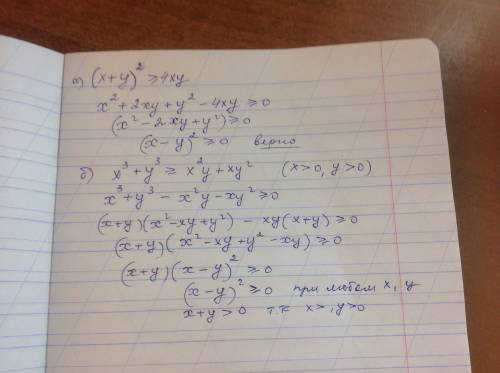 а) (x+y)² ≥ 4xy
x² + 2xy + y² - 4xy ≥ 0
(x² - 2xy + y²) ≥ 0
(x - y)² ≥ 0 верно
б) x³ + y³ ≥ x²y + xy² (x>0, y>0)
x³ + y³ - x²y - xy² ≥ 0
(x+y)(x² - xy + y²) - xy(x+y) ≥ 0
(x+y)(x² - xy + y² - xy) ≥ 0
(x+y)(x-y)² ≥ 0
(x-y)² ≥ 0 при любом x, y
x+y > 0 т.к x>, y>0